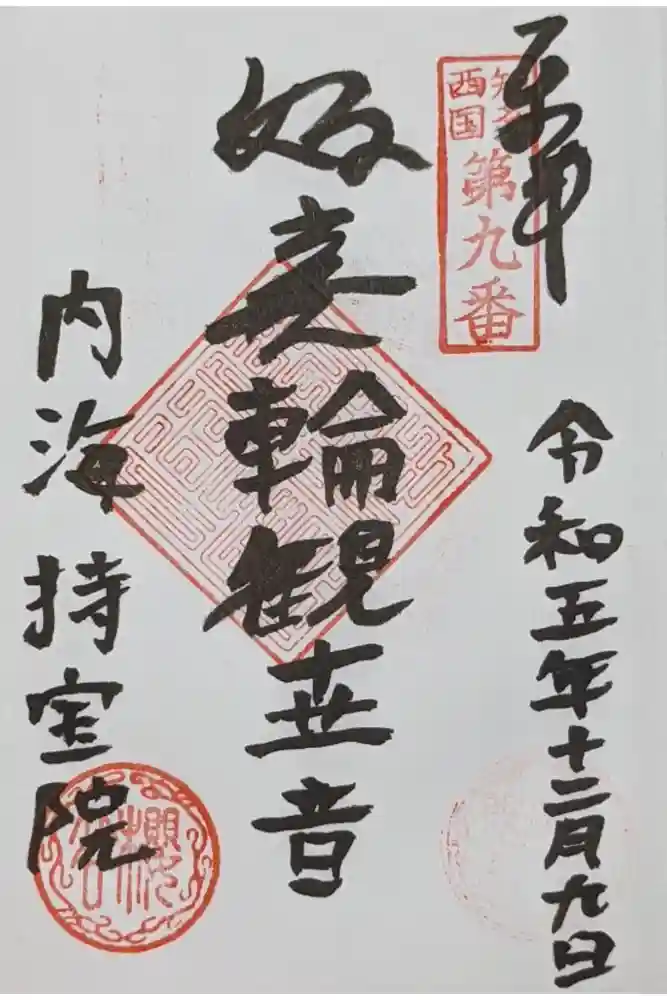 奉拝
知多
西国
第九番
令和五年十二月九日
如意輪観世音
内海持宝院